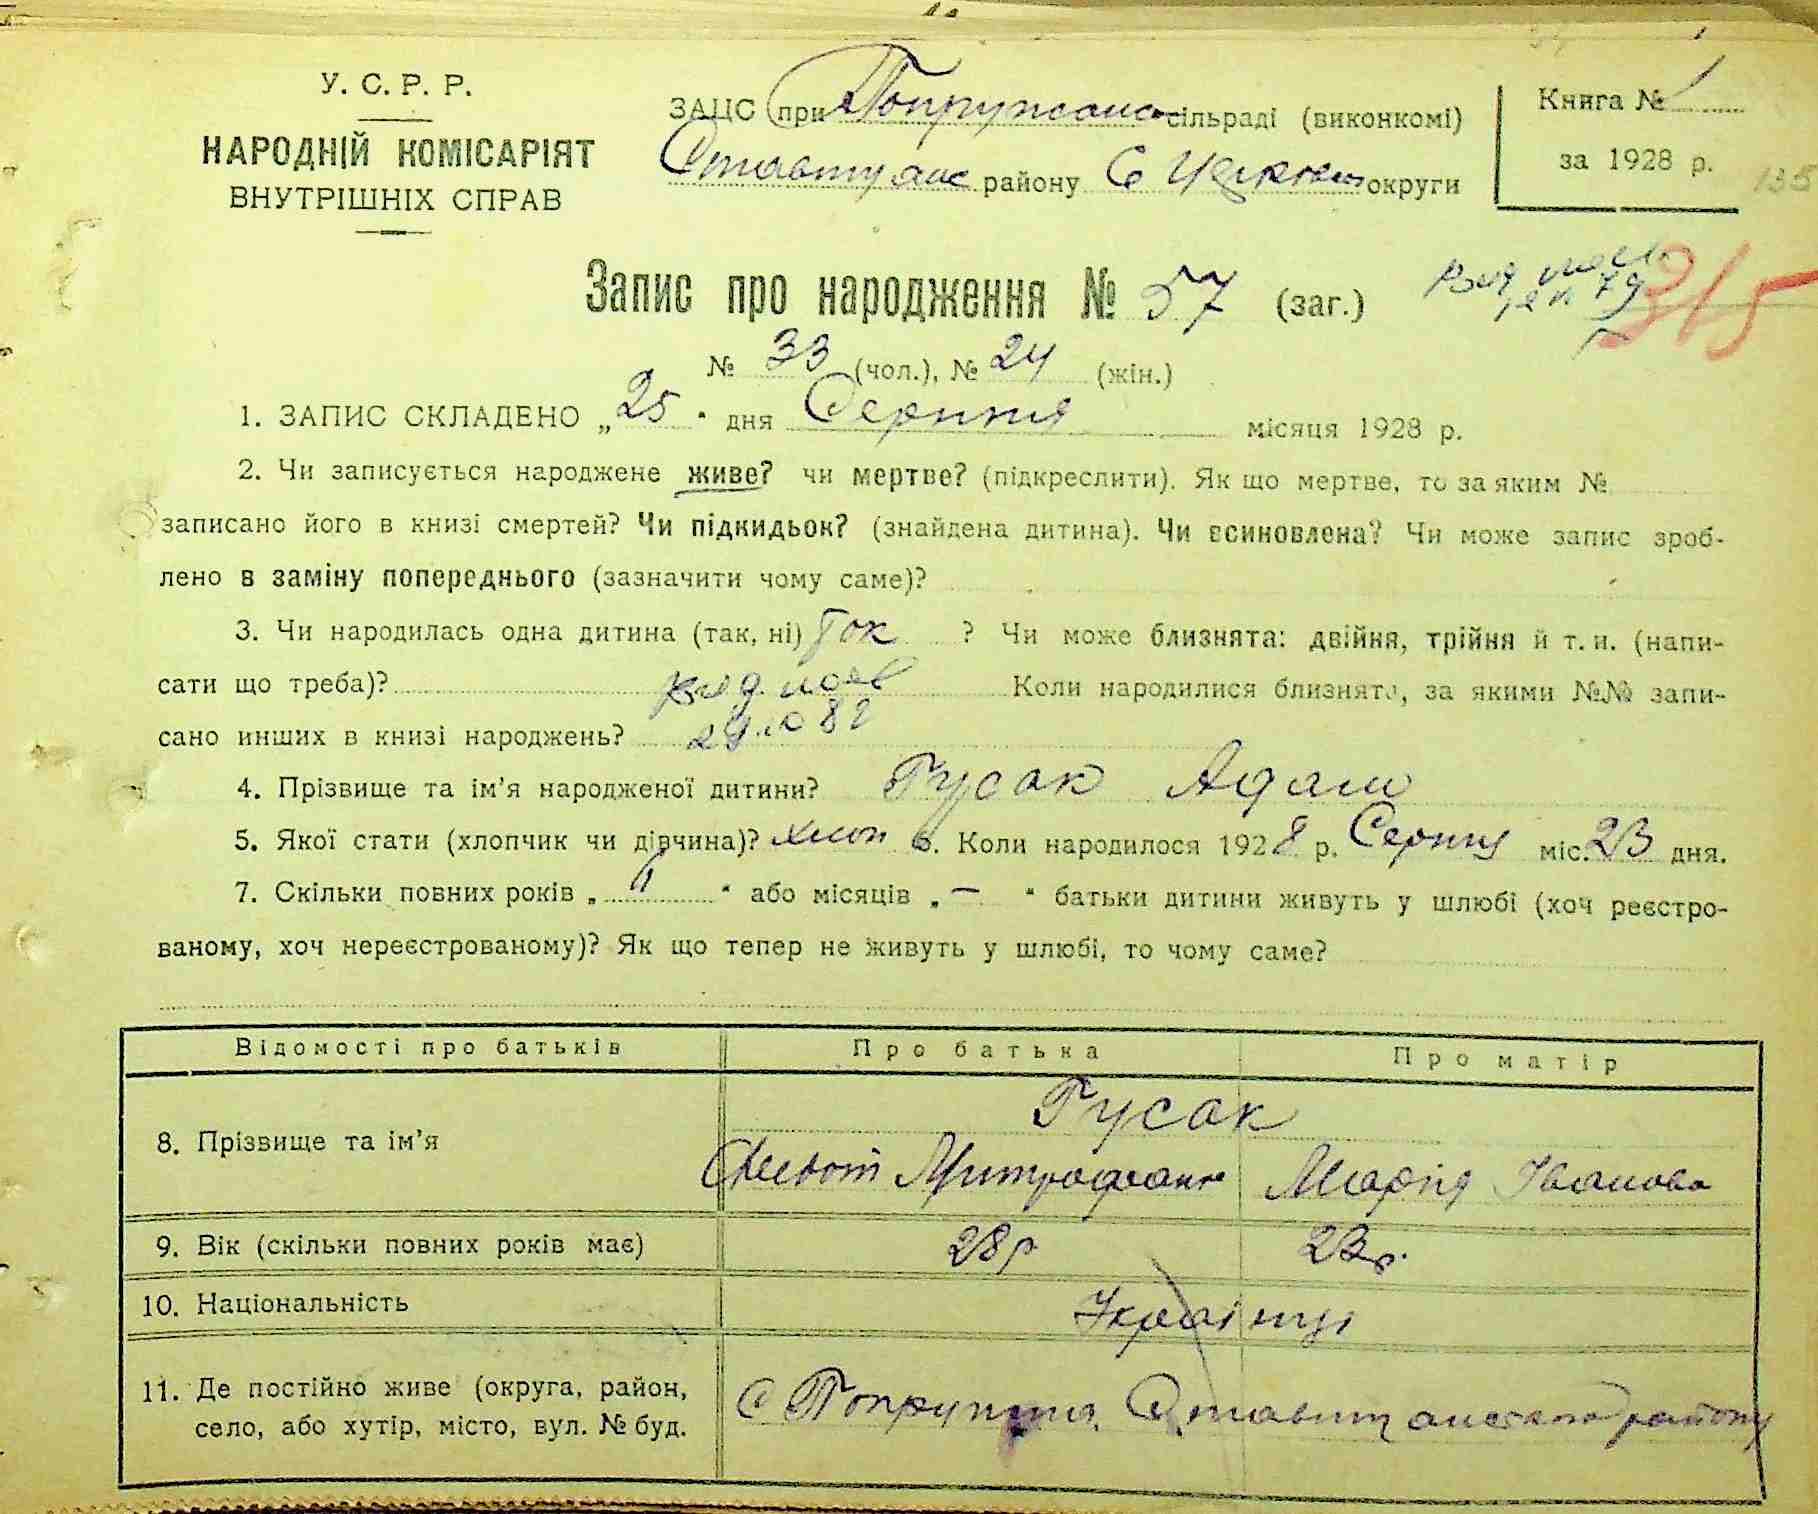 У. С. Р. Р.
НАРОДНІЙ КОМІСАРІЯТ
ВНУТРІШНІХ СПРАВ
ЗАЦС при сільраді (виконкомі)
району Б Церков округи
Книга № 1
за 1928 р.
135
Запис про народження № 57 (заг.)
315
№ 33 (чол.), № 24 (жін.)
1. ЗАПИС СКЛАДЕНО „25“ дня Серпня місяця 1928 р.
2. Чи записується народжене живе? чи мертве? (підкреслити). Як що мертве, то за яким №
записано його в книзі смертей? Чи підкидьок? (знайдена дитина). Чи всиновлена? Чи може запис зроб-
лено в заміну попереднього (зазначити чому саме)?
3. Чи народилась одна дитина (так, ні) Так ? Чи може близнята: двійня, трійня й т. и. (напи-
сати що треба)? Коли народилися близнята, за якими №№ запи-
сано инших в книзі народжень?
4. Прізвище та ім’я народженої дитини? Гусак Адам
5. Якої стати (хлопчик чи дівчина)? хлоп 6. Коли народилося 1928 р. Серпня міс. 23 дня.
7. Скільки повних років „ “ або місяців „—“ батьки дитини живуть у шлюбі (хоч реєстро-
ваному, хоч нереєстрованому)? Як що тепер не живуть у шлюбі, то чому саме?
Відомості про батьків Про батька Про матір
8. Прізвище та ім’я Гусак
Митрофан Марія Іванова
9. Вік (скільки повних років має) 28 р 23 р.
10. Національність Українці
11. Де постійно живе (округа, район,
село, або хутір, місто, вул. № буд.
с Попружна, Ставищанського району